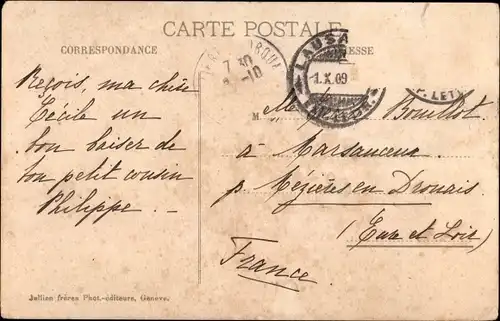 CARTE POSTALE
CORRESPONDANCE
LAUSA
1.X.09
7 30
-10
LET
Reçois, ma chère
Cécile un
bon baiser de
ton petit cousin
Philippe. -
M
Bouillot
à Marsauceux
p. Mézières en Drouais
(Eure et Loir)
France.
Jullien frères Phot.-éditeurs, Genève.